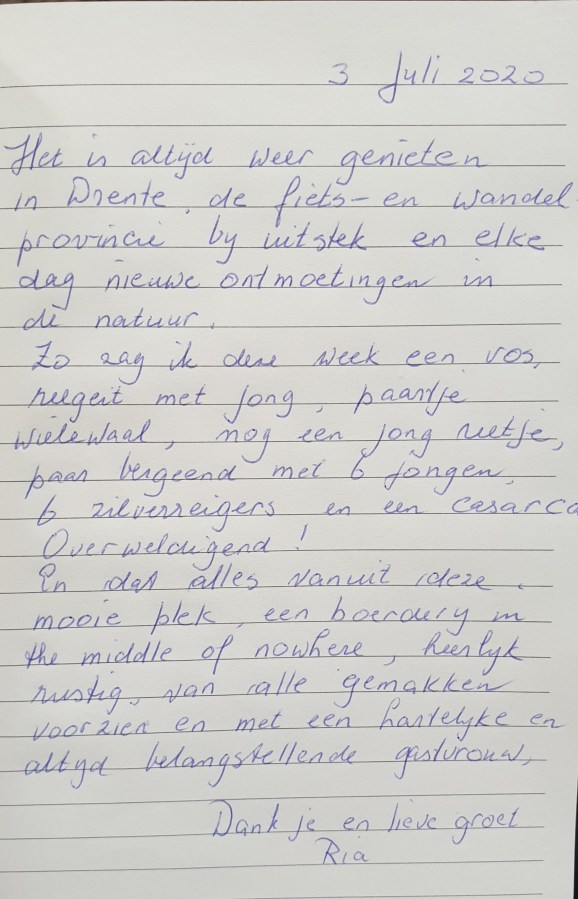 3 Juli 2020
Het is altijd weer genieten
in Drente, de fiets- en wandel-
provincie by uitstek en elke
dag nieuwe ontmoetingen in
de natuur.
Zo zag ik deze week een vos,
reegeit met jong, paartje
wielewaal, nog een jong reetje,
paar bergeend met 6 jongen,
6 zilverreigers en een casarca
Overweldigend!
En dat alles vanuit deze
mooie plek, een boerdery in
the middle of nowhere, heerlyk
rustig, van alle gemakken
voorzien en met een hartelyke en
altyd belangstellende gastvrouw,
Dank je en lieve groet
Ria